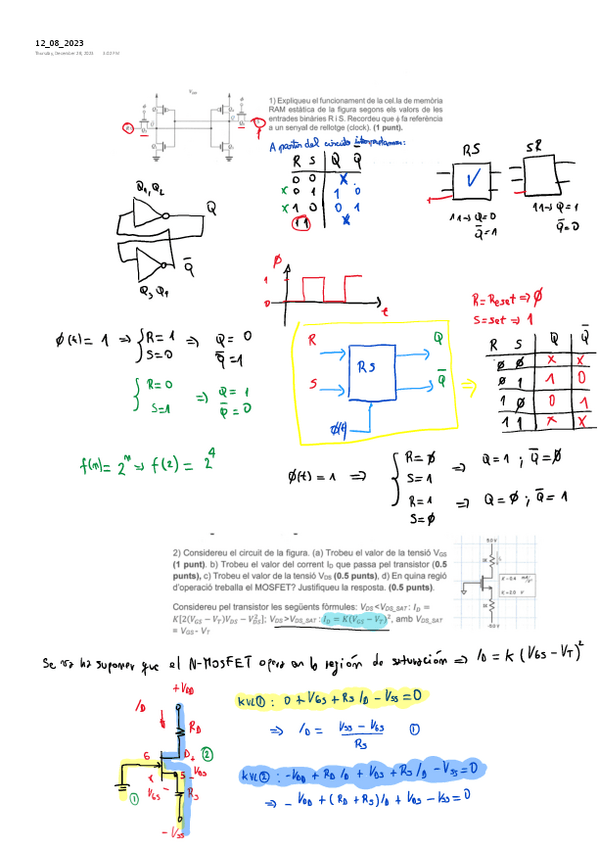 12_08_2023
1) Expliqueu el funcionament de la cel.la de memòria
RAM estàtica de la figura segons els valors de les
entrades binàries R i S. Recordeu que ϕ fa referència
a un senyal de rellotge (clock). (1 punt).
A partir del circuito interpretamos:
R S Q Q̅
0 0 X
X 0 1 1 0
X 1 0 0 1
1 1 X
RS
V
11→ Q=0
Q̅=1
SR
11→ Q=1
Q̅=0
Q
Q̅
ϕ
1
0
t
R=Reset ⇒ ∅
S=Set ⇒ 1
R S Q Q̅
∅ ∅ X X
∅ 1 1 0
1 ∅ 0 1
1 1 X X
R
S
RS
Q
Q̅
ϕ(t)
ϕ(t)=1 ⇒ { R=1 ⇒ Q=0
S=0 Q̅=1
{ R=0 ⇒ Q=1
S=1 Q̅=0
f(n)=2ⁿ ⇒ f(2)=2⁴
ϕ(t)=1 ⇒ { R=∅ ⇒ Q=1 ; Q̅=∅
S=1
R=1 ⇒ Q=∅ ; Q̅=1
S=∅
2) Considereu el circuit de la figura. (a) Trobeu el valor de la tensió VGS
(1 punt). b) Trobeu el valor del corrent ID que passa pel transistor (0.5
punts), c) Trobeu el valor de la tensió VDS (0.5 punts), d) En quina regió
d'operació treballa el MOSFET? Justifiqueu la resposta. (0.5 punts).
Considereu pel transistor les següents fórmules: VDS<VDS_SAT: ID =
K[2(VGS − VT)VDS − VDS²]; VDS>VDS_SAT: ID = K(VGS − VT)², amb VDS_SAT
= VGS - VT
Se va ha suponer que el N-MOSFET opera en la región de saturación ⇒ ID = K (VGS−VT)²
+VDD
ID
RD
G
D
+
②
VDS
S
-
VGS
RS
①
-VSS
KVL①: 0+VGS+RS ID−VSS=0
⇒ ID = (VSS−VGS)/RS ①
KVL②: -VDD+RD ID+VDS+RS ID−VSS=0
⇒ −VDD+(RD+RS)ID+VDS−VSS=0